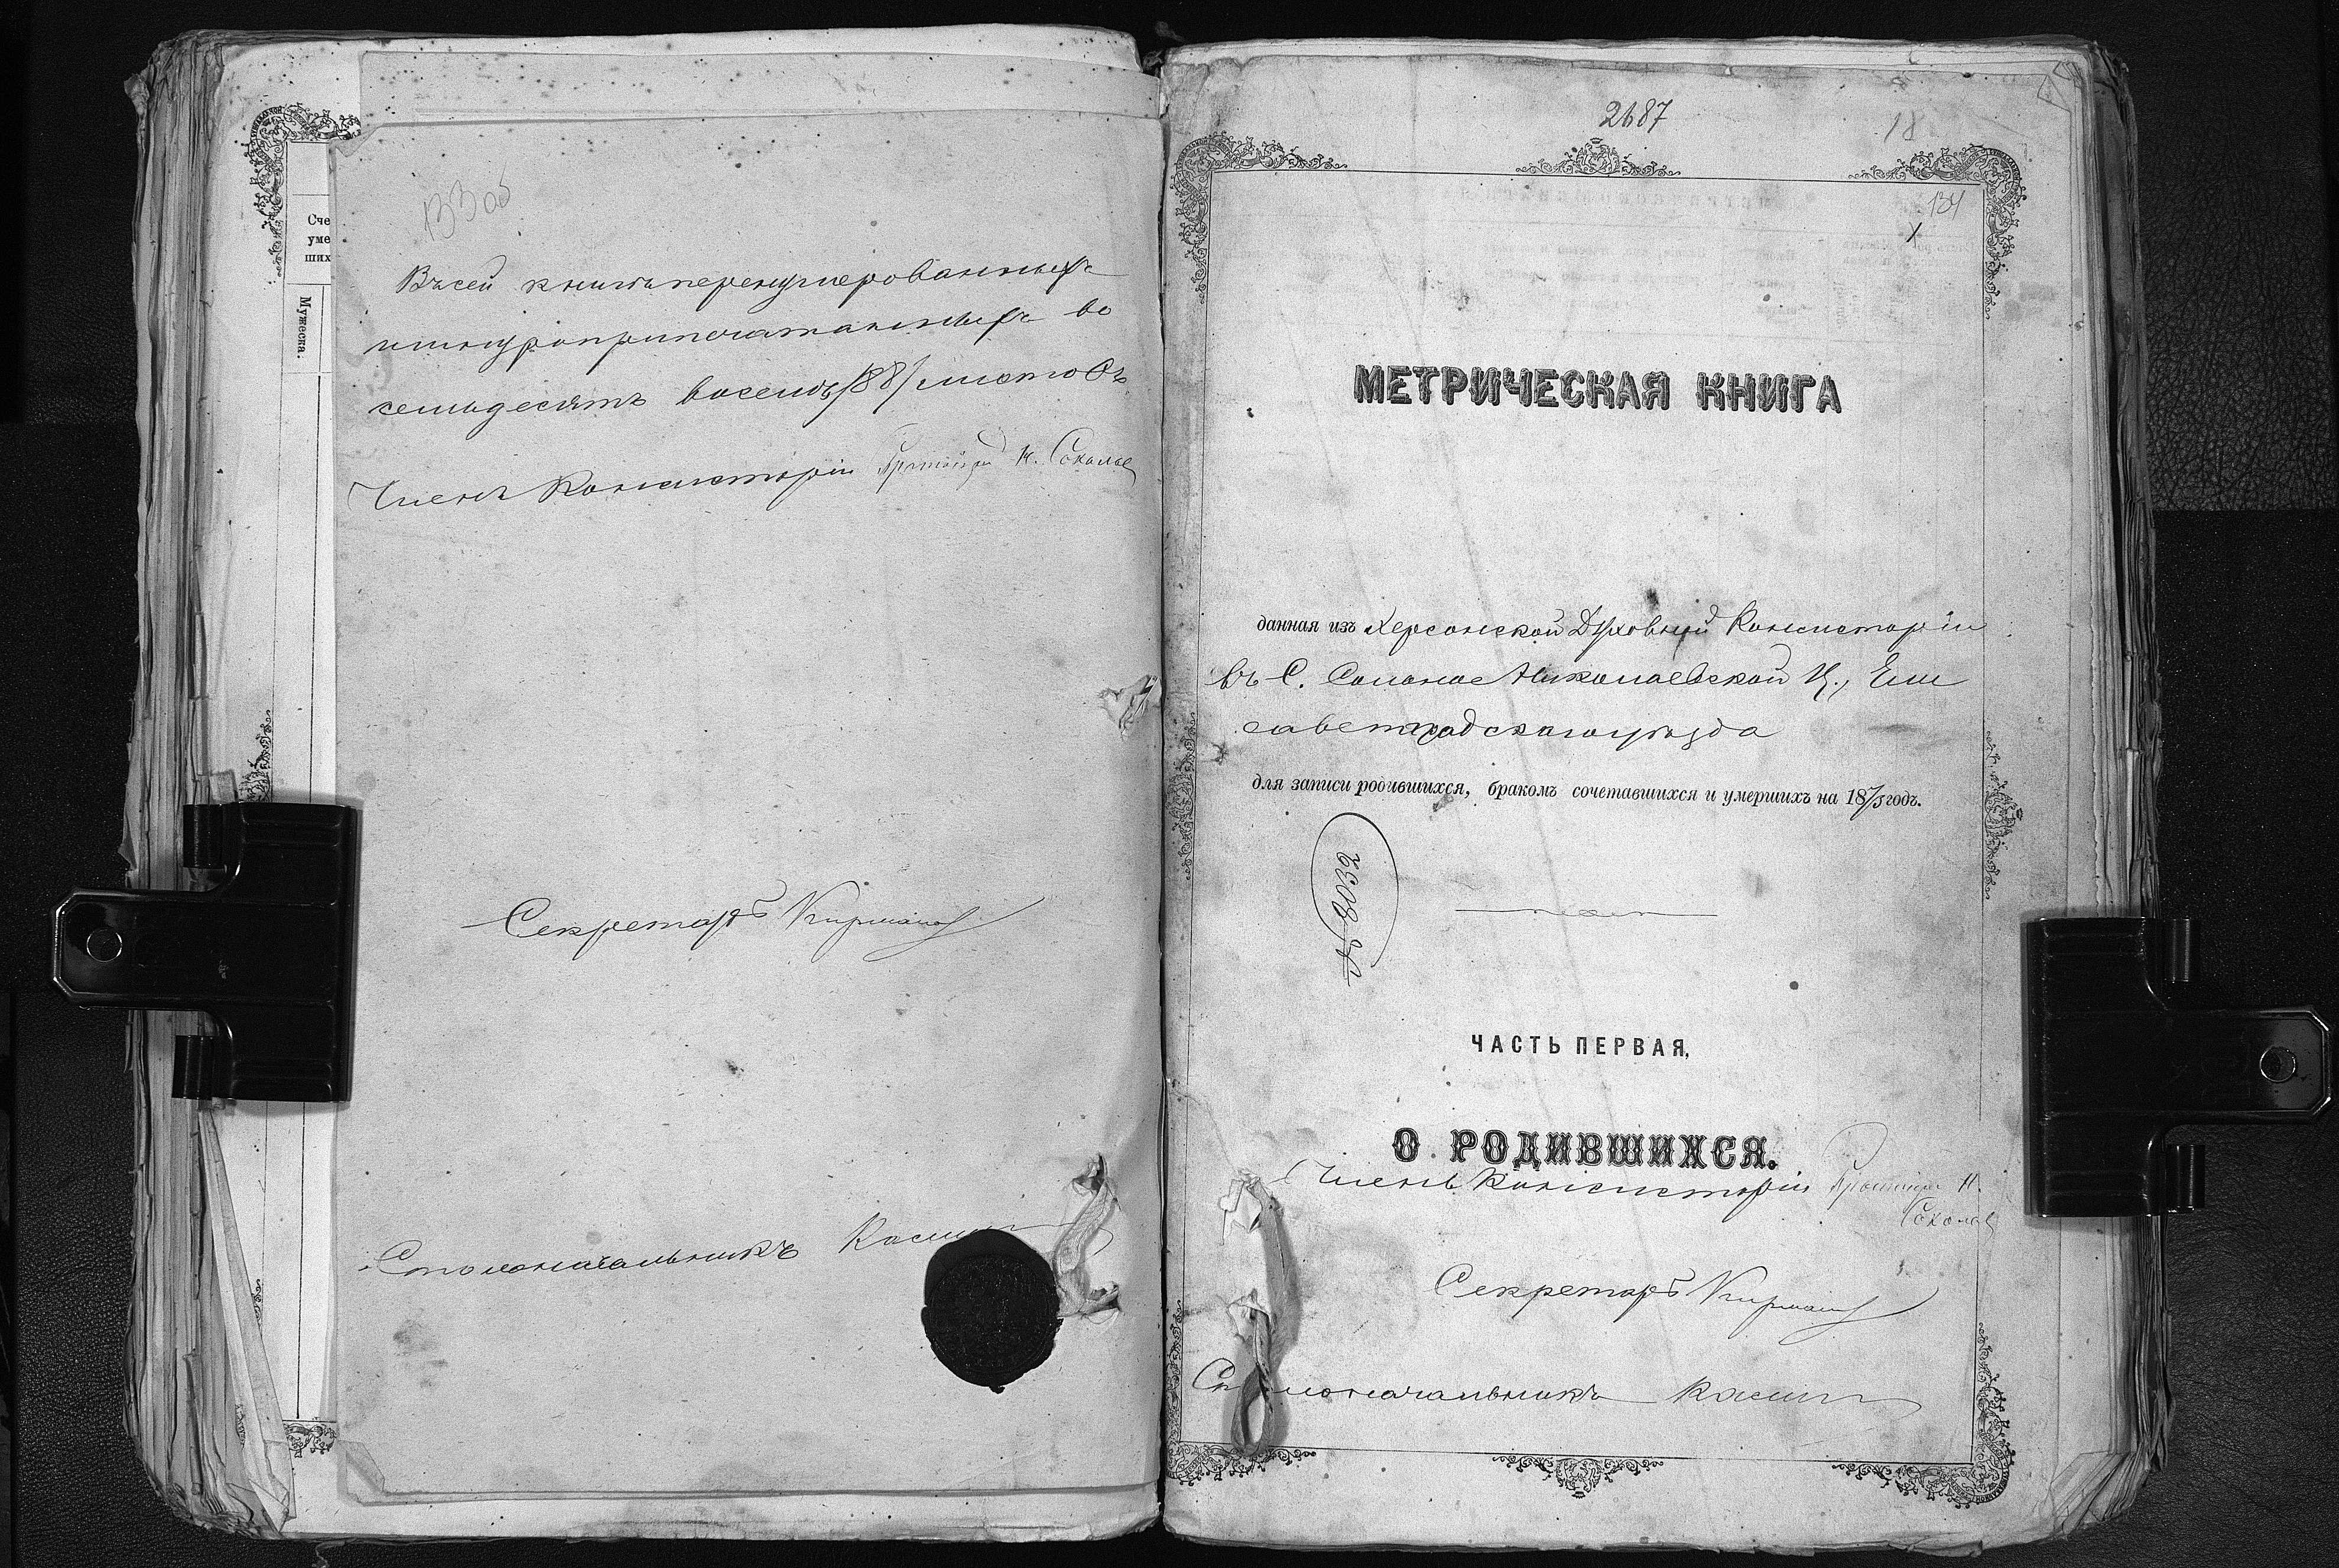 133 об
Сче
уме
ших
Мужеска.
Въ сей книгѣ перенумерованныхъ
шнуроприпечатанныхъ во
семьдесятъ восемь /88/ листовъ
Членъ Консисторіи Протоіерей Н. Соколов
Секретарь
Столоначальникъ
2687
18
134
1
МЕТРИЧЕСКАЯ КНИГА
данная изъ Херсонской Духовной Консисторіи
въ С. Николаевской Ц., Ели
саветградскаго уѣзда
для записи родившихся, бракомъ сочетавшихся и умершихъ на 1875 годъ.
ЧАСТЬ ПЕРВАЯ,
О РОДИВШИХСЯ.
Членъ Консисторіи Протоіерей Н.
Соколов
Секретарь
Столоначальникъ